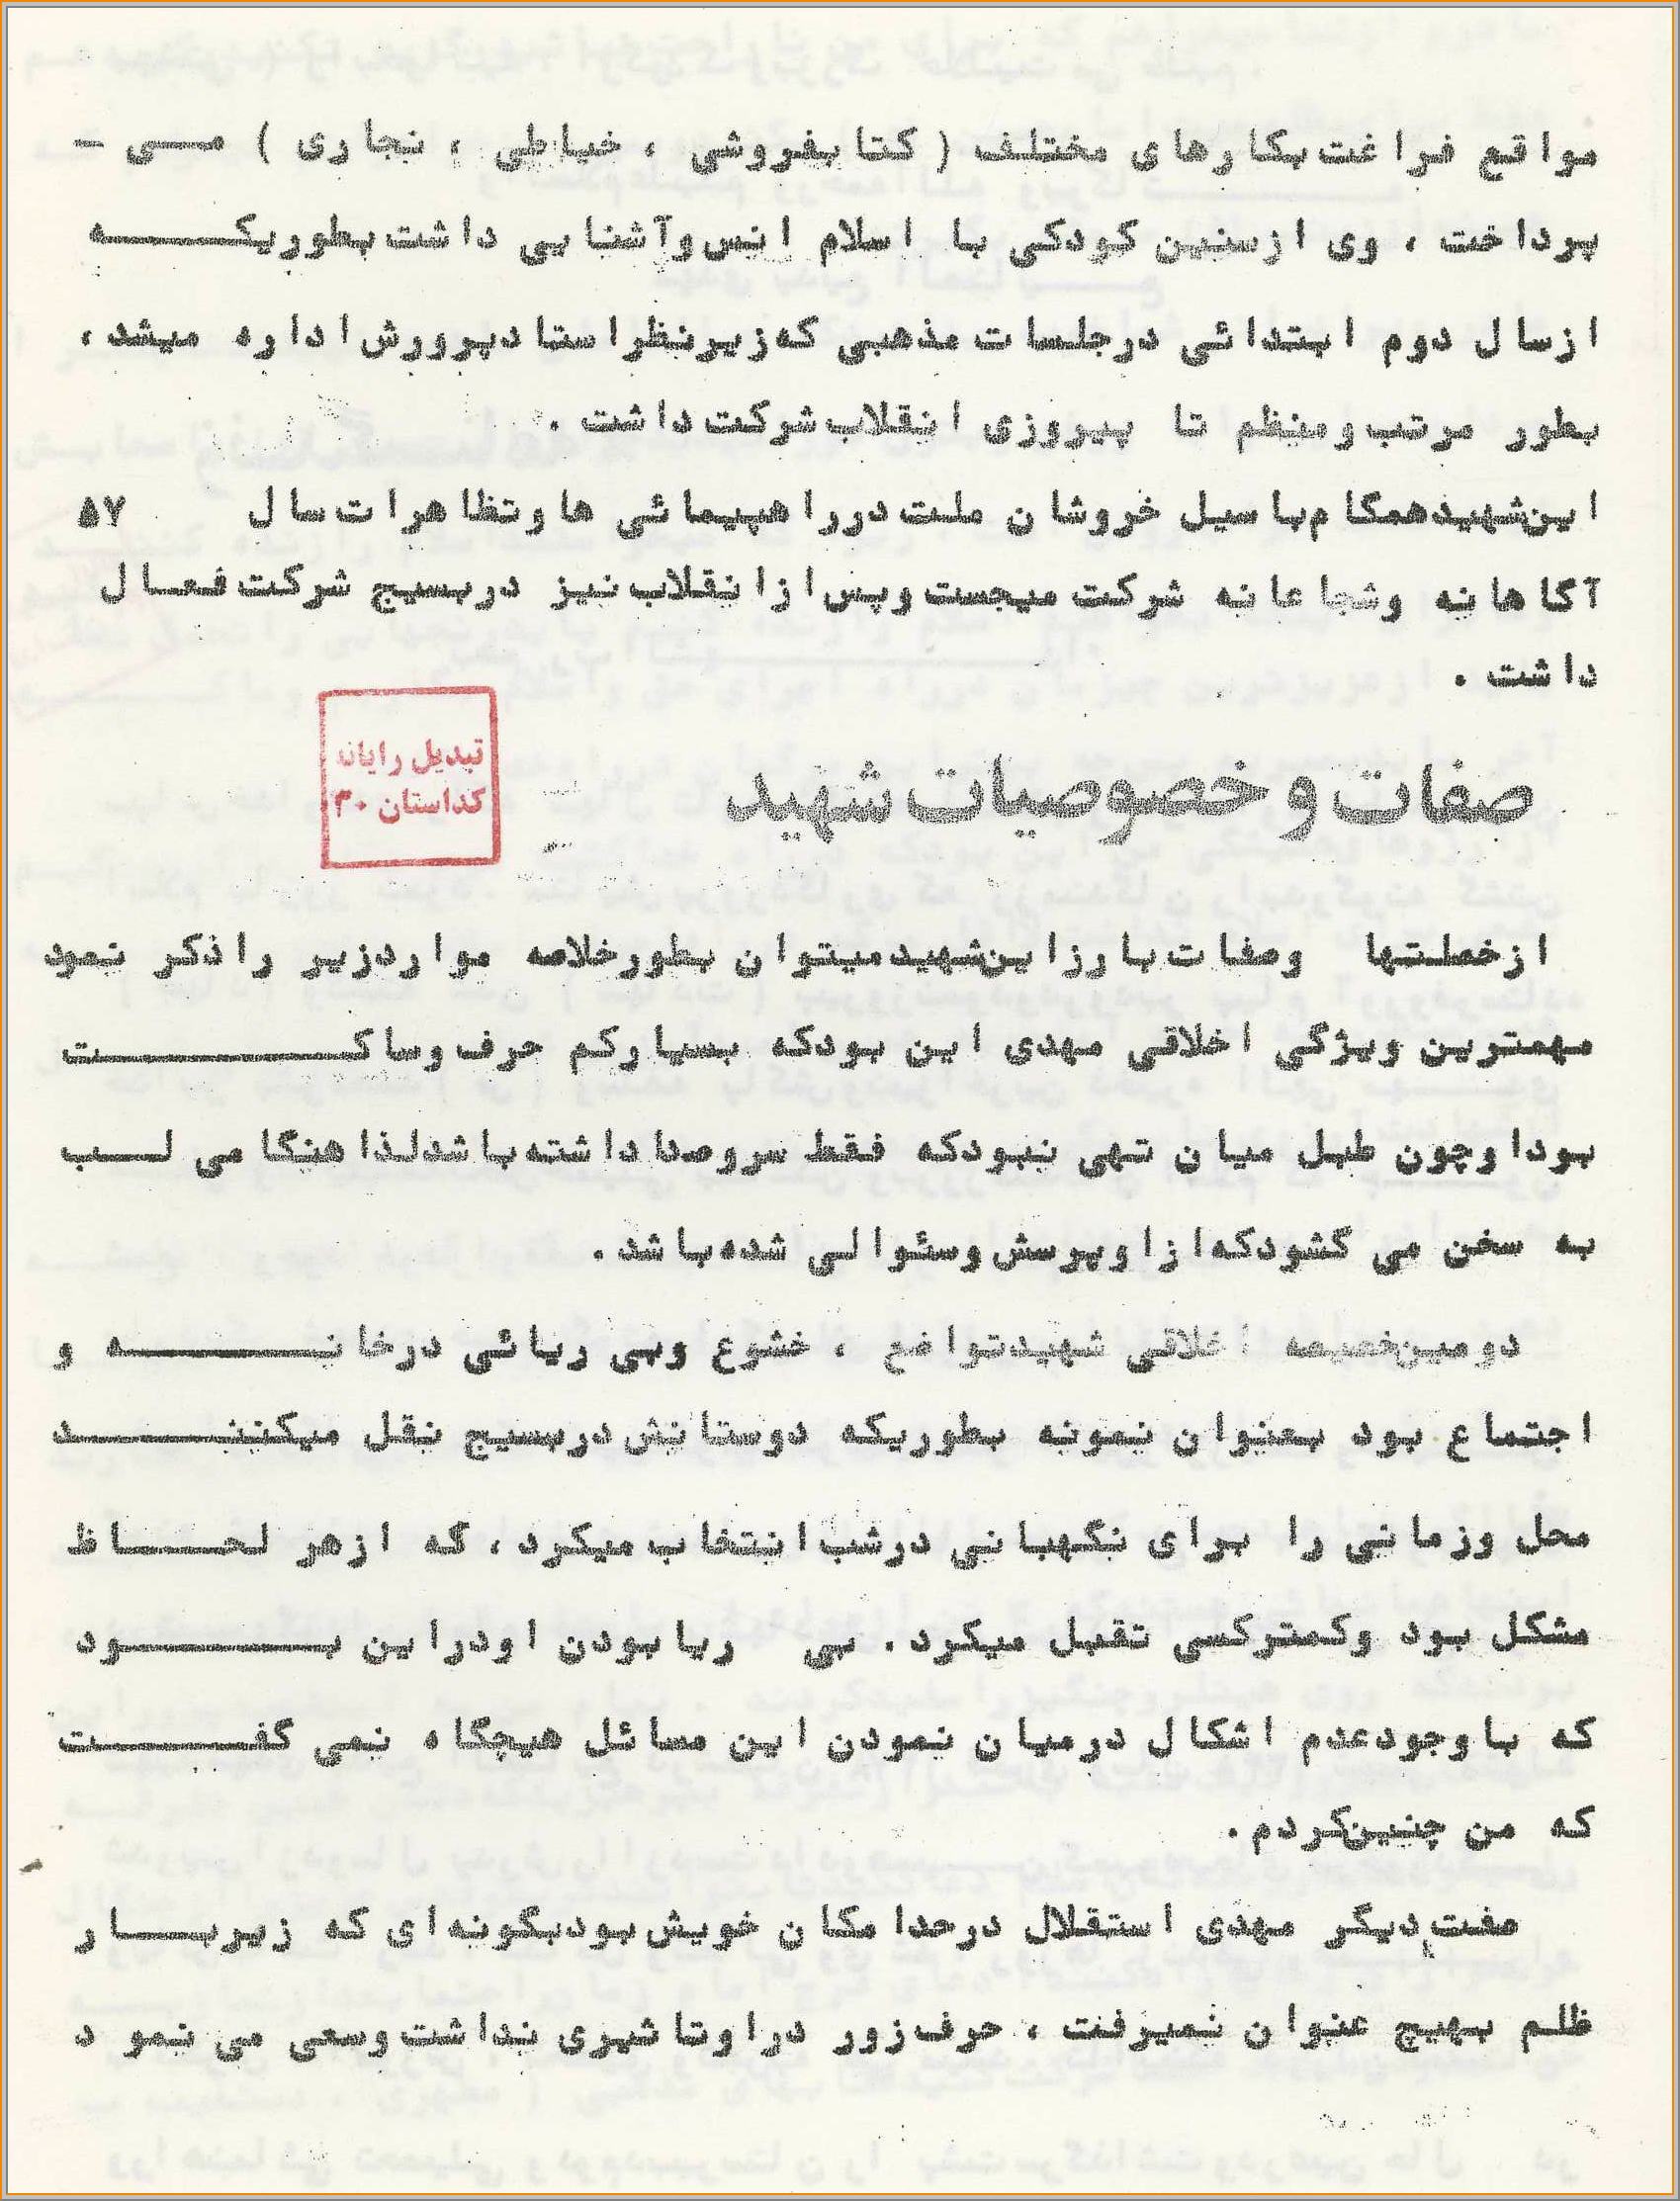 مواقع فراغت بکارهای مختلف ( کتابفروشی ، خیاطی ، نجاری ) مــی -
پرداخت ، وی ازسنین کودکی با اسلام انس وآشنایی داشت بطوریکــــه
ازسال دوم ابتدائی درجلسات مذهبی که زیرنظراستادپرورش اداره میشد ،
بطور مرتب ومنظم تا پیروزی انقلاب شرکت داشت .
این شهیدهمگام باسیل خروشان ملت درراهپیمائی ها وتظاهرات سال ۵۷
آگاهانه وشجاعانه شرکت میجست وپس ازانقلاب نیز دربسیج شرکت فعـال
داشت .
صفات و خصوصیات شهید
تبدیل رایانه
کداستان ۳۰
ازخصلتها وصفات بارزاین شهیدمیتوان بطورخلاصه مواردزیر راذکر نمود
مهمترین ویژگی اخلاقی مهدی این بودکه بسیارکم حرف وساکــــــــت
بوداوچون طبل میان تهی نبودکه فقط سروصدا داشته باشدلذا هنگامی لـــب
به سخن می گشودکه ازاوپرسش وسئوالی شده باشد .
دومین خصیصه اخلاقی شهیدتواضع ، خشوع وبی ریائی درخانــــــــه و
اجتماع بود بعنوان نمونه بطوریکه دوستانش دربسیج نقل میکننــــــد
محل وزمانی را برای نگهبانی درشب انتخاب میکرد ، که ازهر لحــــاظ
مشکل بود وکمترکسی تقبل میکرد . بی ریابودن اودراین بــــــــود
که باوجودعدم اشکال درمیان نمودن این مسائل هیچگاه نمی گفــــــت
که من چنین کردم .
صفت دیگر مهدی استقلال درحدامکان خویش بودبگونه ای که زیربـــار
ظلم بهیچ عنوان نمیرفت ، حرف زور دراوتاثیری نداشت وسعی می نمو د